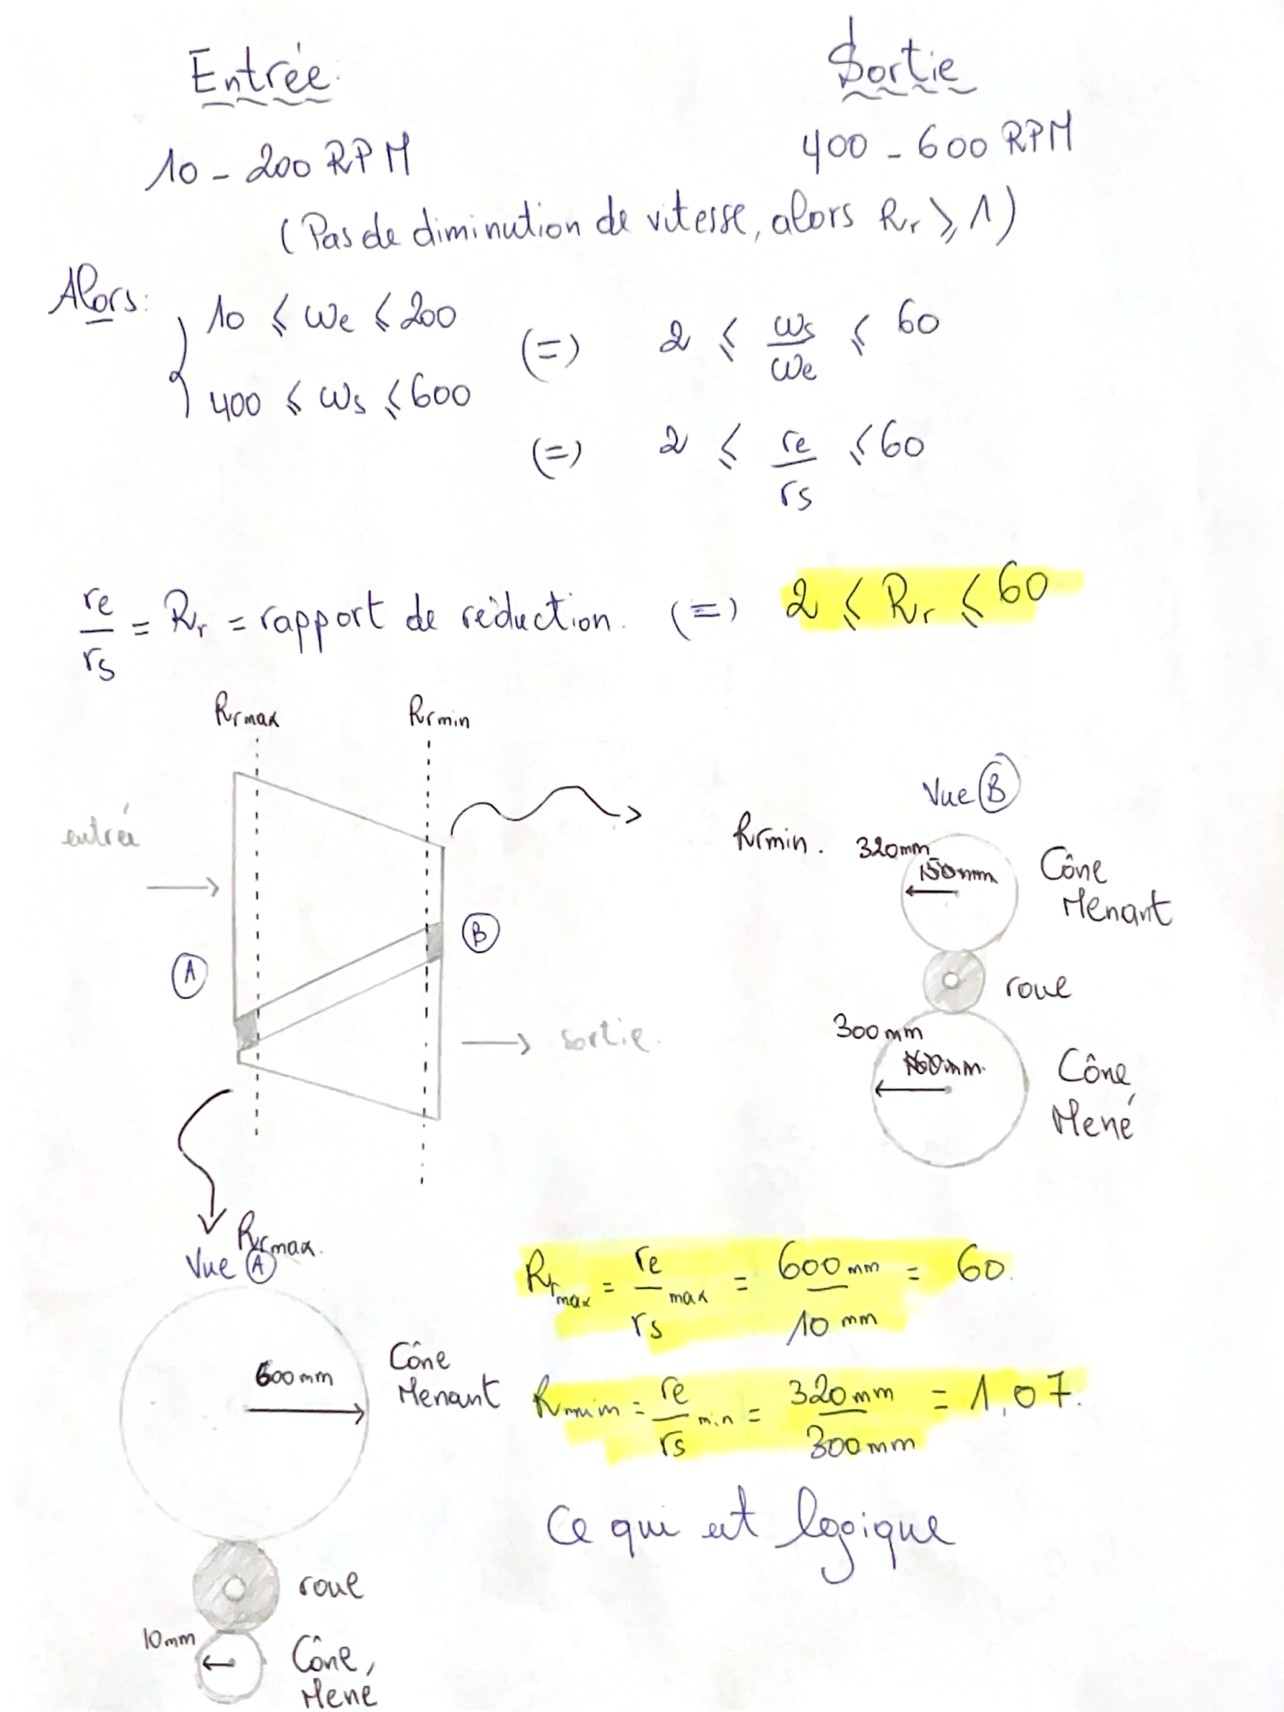 Entrée
Sortie
10 - 200 RPM
400 - 600 RPM
(Pas de diminution de vitesse, alors Rr ⩾ 1)
Alors:
10 ⩽ ωe ⩽ 200
400 ⩽ ωs ⩽ 600
(=) 2 ⩽ ωs/ωe ⩽ 60
(=) 2 ⩽ re/rs ⩽ 60
re/rs = Rr = rapport de réduction. (=) 2 ⩽ Rr ⩽ 60
Rrmax
Rrmin
entrée
A
B
sortie.
Vue B
Rrmin.
320mm
150mm
Cône
Menant
roue
300mm
Cône
Mené
Rrmax.
Vue A
600mm
Cône
Menant
roue
10mm
Cône
Mené
Rrmax = re/rs max = 600 mm / 10 mm = 60.
Rrmin = re/rs min = 320 mm / 300 mm = 1,07.
Ce qui est logique